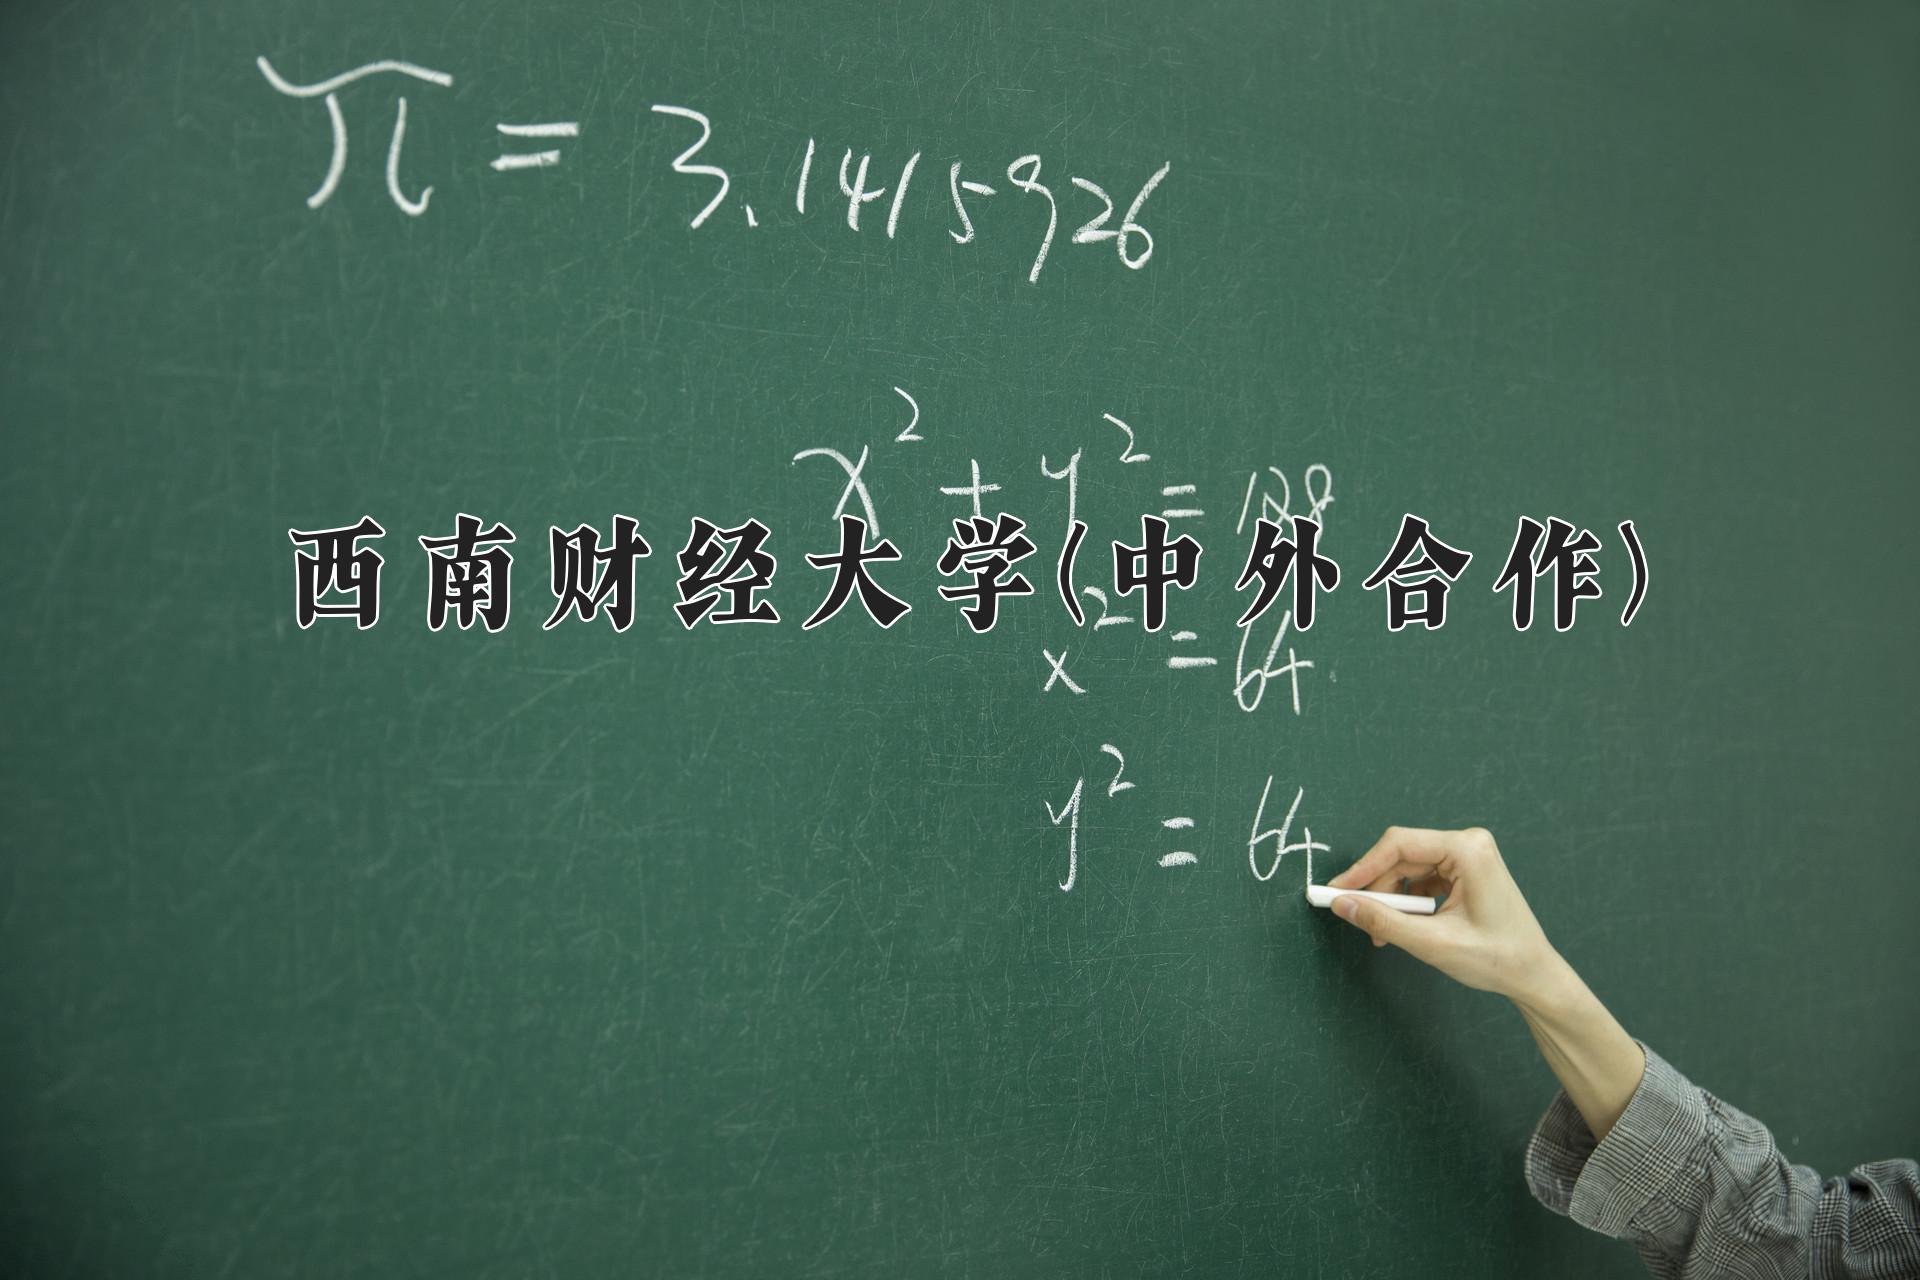 π = 3.1415926
x² + y² = 128
西南财经大学(中外合作)
x² = 64
y² = 64